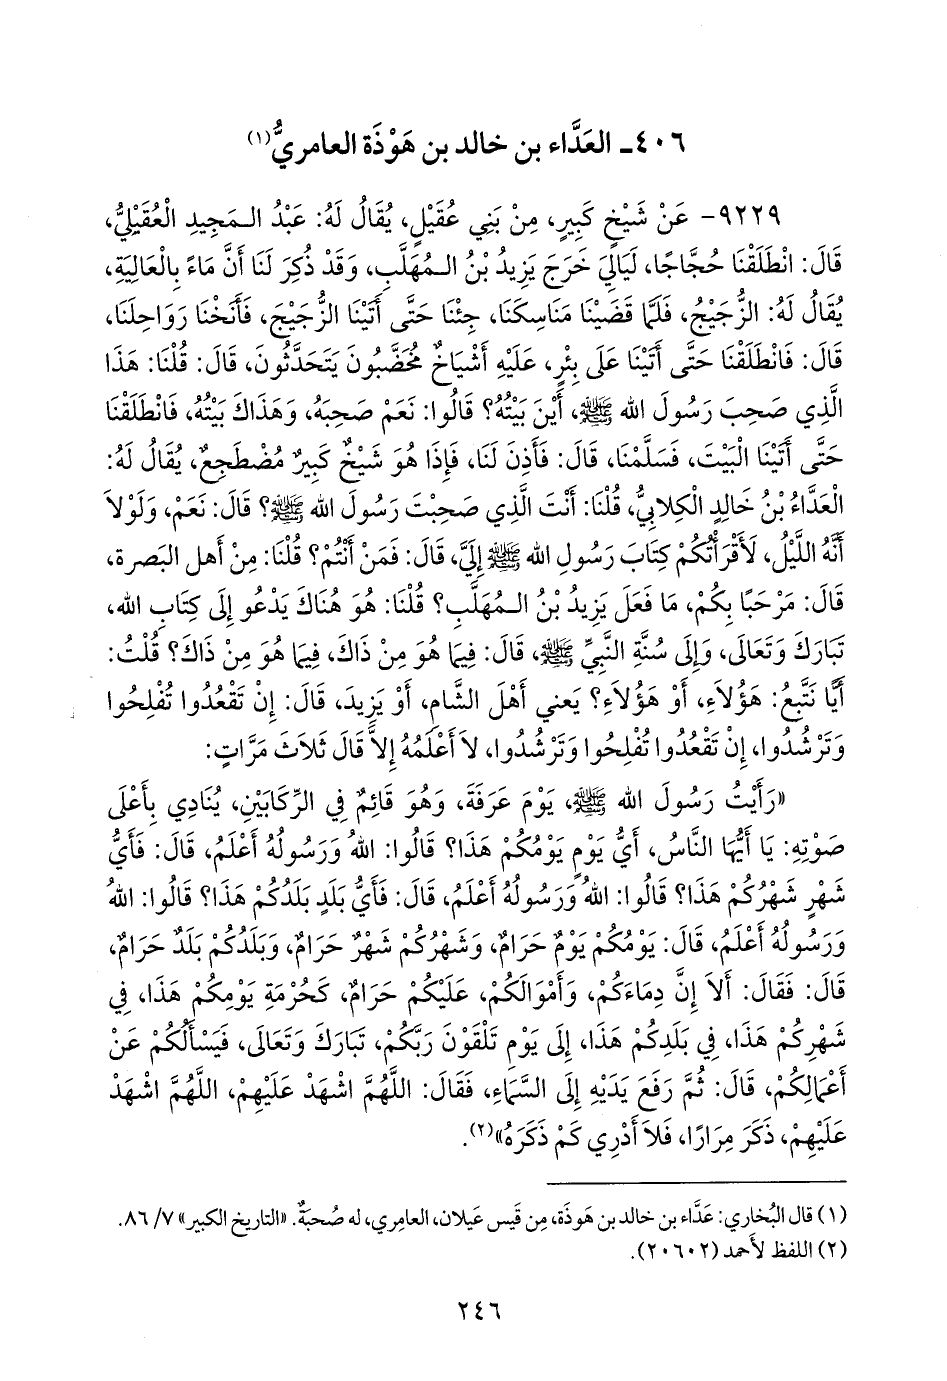 ٤٠٦ـ العَدَّاء بن خالد بن هَوْذَة العامريُّ(١)
٩٢٢٩- عَنْ شَيْخٍ كَبِيرٍ، مِنْ بَنِي عُقَيْلٍ، يُقَالُ لَهُ: عَبْدُ الـمَجِيدِ الْعُقَيْلِيُّ،
قَالَ: انْطَلَقْنَا حُجَّاجًا، لَيَالِيَ خَرَجَ يَزِيدُ بْنُ الـمُهَلَّبِ، وَقَدْ ذُكِرَ لَنَا أَنَّ مَاءً بِالْعَالِيَةِ،
يُقَالُ لَهُ: الزُّجَيْجُ، فَلَمَّا قَضَيْنَا مَنَاسِكَنَا، جِئْنَا حَتَّى أَتَيْنَا الزُّجَيْجَ، فَأَنَخْنَا رَوَاحِلَنَا،
قَالَ: فَانْطَلَقْنَا حَتَّى أَتَيْنَا عَلَى بِئْرٍ، عَلَيْهِ أَشْيَاخٌ مُخَضَّبُونَ يَتَحَدَّثُونَ، قَالَ: قُلْنَا: هَذَا
الَّذِي صَحِبَ رَسُولَ الله ﷺ، أَيْنَ بَيْتُهُ؟ قَالُوا: نَعَمْ صَحِبَهُ، وَهَذَاكَ بَيْتُهُ، فَانْطَلَقْنَا
حَتَّى أَتَيْنَا الْبَيْتَ، فَسَلَّمْنَا، قَالَ: فَأَذِنَ لَنَا، فَإِذَا هُوَ شَيْخٌ كَبِيرٌ مُضْطَجِعٌ، يُقَالُ لَهُ:
الْعَدَّاءُ بْنُ خَالِدٍ الْكِلاَبِيُّ، قُلْنَا: أَنْتَ الَّذِي صَحِبْتَ رَسُولَ الله ﷺ؟ قَالَ: نَعَمْ، وَلَوْلاَ
أَنَّهُ اللَّيْلُ، لَأَقْرَأْتُكُمْ كِتَابَ رَسُولِ الله ﷺ إِلَيَّ، قَالَ: فَمَنْ أَنْتُمْ؟ قُلْنَا: مِنْ أَهل البَصرة،
قَالَ: مَرْحَبًا بِكُمْ، مَا فَعَلَ يَزِيدُ بْنُ الـمُهَلَّبِ؟ قُلْنَا: هُوَ هُنَاكَ يَدْعُو إِلَى كِتَابِ الله،
تَبَارَكَ وَتَعَالَى، وَإِلَى سُنَّةِ النَّبِيِّ ﷺ، قَالَ: فِيمَا هُوَ مِنْ ذَاكَ، فِيمَا هُوَ مِنْ ذَاكَ؟ قُلْتُ:
أَيًّا نَتَّبِعُ: هَؤُلاَءِ، أَوْ هَؤُلاَءِ؟ يَعني أَهْلَ الشَّامِ، أَوْ يَزِيدَ، قَالَ: إِنْ تَقْعُدُوا تُفْلِحُوا
وَتَرْشُدُوا، إِنْ تَقْعُدُوا تُفْلِحُوا وَتَرْشُدُوا، لاَ أَعْلَمُهُ إِلاَّ قَالَ ثَلاَثَ مَرَّاتٍ:
«رَأَيْتُ رَسُولَ الله ﷺ، يَوْمَ عَرَفَةَ، وَهُوَ قَائِمٌ فِي الرِّكَابَيْنِ، يُنَادِي بِأَعْلَى
صَوْتِهِ: يَا أَيُّهَا النَّاسُ، أَيُّ يَوْمٍ يَوْمُكُمْ هَذَا؟ قَالُوا: اللهُ وَرَسُولُهُ أَعْلَمُ، قَالَ: فَأَيُّ
شَهْرٍ شَهْرُكُمْ هَذَا؟ قَالُوا: اللهُ وَرَسُولُهُ أَعْلَمُ، قَالَ: فَأَيُّ بَلَدٍ بَلَدُكُمْ هَذَا؟ قَالُوا: اللهُ
وَرَسُولُهُ أَعْلَمُ، قَالَ: يَوْمُكُمْ يَوْمٌ حَرَامٌ، وَشَهْرُكُمْ شَهْرٌ حَرَامٌ، وَبَلَدُكُمْ بَلَدٌ حَرَامٌ،
قَالَ: فَقَالَ: أَلاَ إِنَّ دِمَاءَكُمْ، وَأَمْوَالَكُمْ، عَلَيْكُمْ حَرَامٌ، كَحُرْمَةِ يَوْمِكُمْ هَذَا، فِي
شَهْرِكُمْ هَذَا، فِي بَلَدِكُمْ هَذَا، إِلَى يَوْمِ تَلْقَوْنَ رَبَّكُمْ، تَبَارَكَ وَتَعَالَى، فَيَسْأَلُكُمْ عَنْ
أَعْمَالِكُمْ، قَالَ: ثُمَّ رَفَعَ يَدَيْهِ إِلَى السَّمَاءِ، فَقَالَ: اللَّهُمَّ اشْهَدْ عَلَيْهِمْ، اللَّهُمَّ اشْهَدْ
عَلَيْهِمْ، ذَكَرَ مِرَارًا، فَلاَ أَدْرِي كَمْ ذَكَرَهُ»(٢).
(١) قال البُخاري: عَدَّاء بن خالد بن هَوذَة، مِن قَيس عَيلان، العامِري، له صُحبَةٌ. «التاريخ الكبير» ٧/ ٨٦.
(٢) اللفظ لأَحمد (٢٠٦٠٢).
٢٤٦